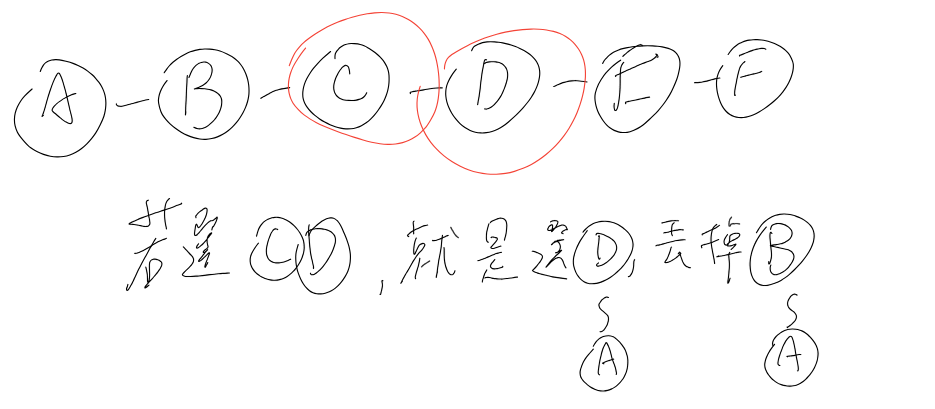 A - B - C - D - E - F
若選CD,就是選D,丟掉B
A A